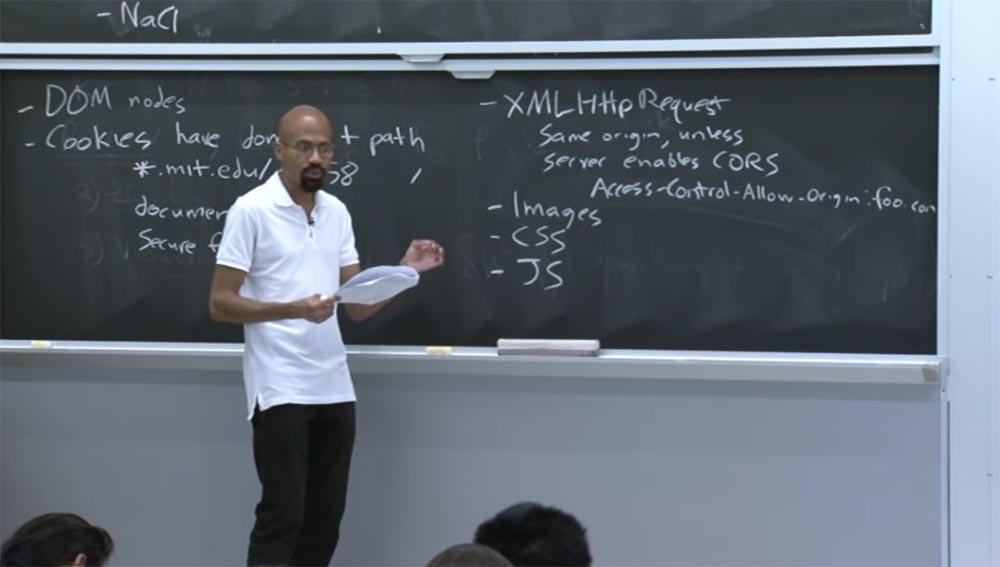 - NaCl
- DOM nodes
- Cookies have dom + path
*.mit.edu/ 58 /
documen
Secure f
- XMLHttpRequest
Same origin, unless
server enables CORS
Access-Control-Allow-Origin: foo.com
- Images
- CSS
- JS